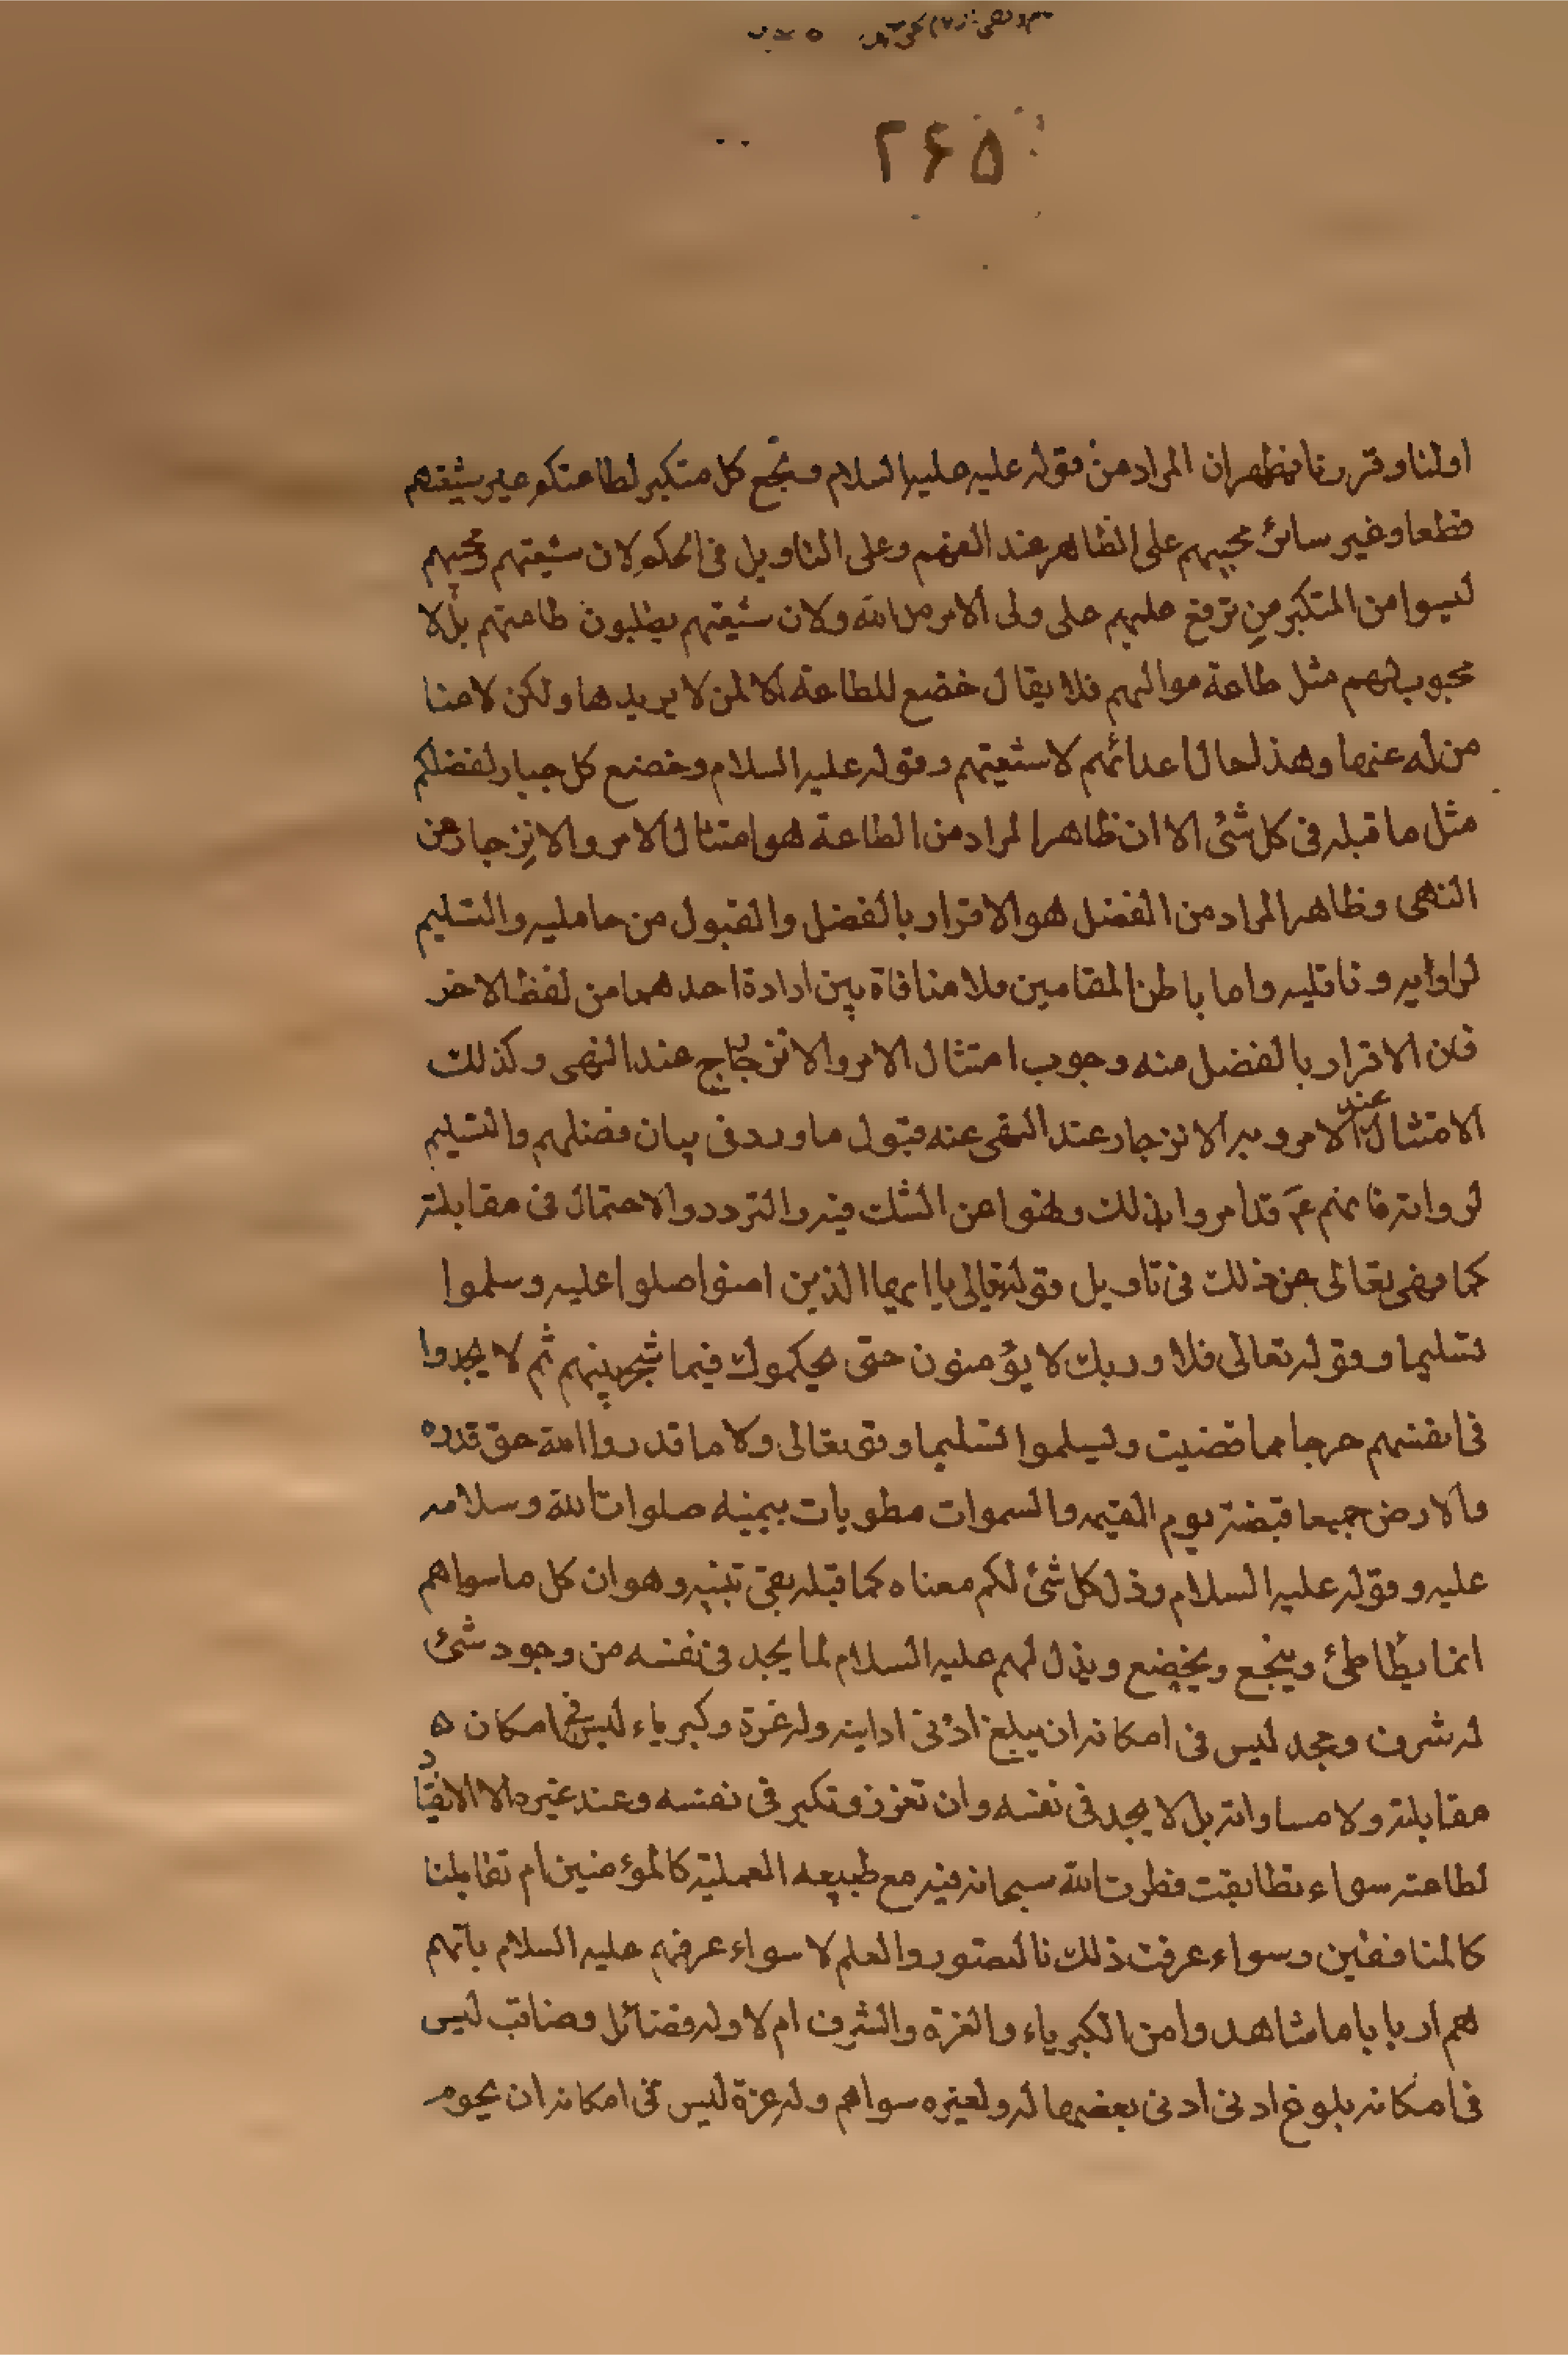 ۲۶۵
اولنا وقررنا فظهران المراد من قوله عليه عليه السلام وبخع كل متكبر لطاعتكم غير شيعتهم
قطعا وغير سائر محبيهم على الظاهر عند الفهم وعلى التاويل فى الحكم لان شيعتهم ومحبيهم
ليسوا من المتكبرمن ترفع عليهم على ولى الامر من الله ولان شيعتهم يطلبون طاعتهم بل لا
محبوب لهم مثل طاعة مواليهم فلا يقال خضع للطاعة الا لمن لا يريدها ولكن لا مناً
من له عنها وهذا حال اعدائهم لا شيعتهم وقوله عليه السلام وخضع كل جبار لفضلكم
مثل ما قبله فى كل شئ الا ان ظاهر المراد من الطاعة هو امتثال الامر والانزجار عن
النهى وظاهر المراد من الفضل هو الاقرار بالفضل والقبول من حامليه والتسليم
لراوايه وناقليه واما باطن المقامين فلا منافاة بين ارادة احدهما من لفظ الاخر
فان الاقرار بالفضل منه وجوب امتثال الامر والانزجاج عند النهى وكذلك
الامتثال عند الامر وبه الانزجار عند النهى عنه قبول ما ورد فى بيان فضلهم والتسليم
لرواته فانهم عَ قد امروا بذلك ونهوا عن الشك فيه والتردد والاحتمال فى مقابلته
كما نهى تعالى عن ذلك فى تاويل قوله تعالى يا ايها الذين امنوا صلوا عليه وسلموا
تسليما وقوله تعالى فلا وربك لا يؤمنون حتى يحكموك فيما شجر بينهم ثم لا يجدوا
فى انفسهم حرجا مما قضيت ويسلموا تسليما وقى تعالى ولا ما قدروا الله حق قدره
والارض جميعا قبضته يوم القيمه والسموات مطويات بيمينه صلوات الله وسلامه
عليه وقوله عليه السلام وذل كل شئ لكم معناه كما قبله بقى تنبيه وهو ان كل ما سواهم
انما يطاطئ ويبخع ويخضع ويذل لهم عليه السلام لما يجد فى نفسه من وجود شئ
له شرف ومجد ليس فى امكانه ان يبلغ ادنى ادانيه وله عزة وكبرياء ليس فى امكان ه
مقابلته ولا مساواته بل لا يجد فى نفسه وان تعزز وتكبر فى نفسه وعند غيره الا الانقياد
لطاعته سواء تطابقت فطرت الله سبحانه فيه مع طبيعه العملية كالمؤمنين ام تقابلنا
كالمنافقين وسواء عرفت ذلك بالتصور والعلم لا سواء عرفهم عليه السلام بانهم
هم ارباب ما شاهدوا من الكبرياء والعزة والشرف ام لا وله فضائل ومناقب ليس
فى امكانه بلوغ ادنى ادنى بعضها له ولغيره سواهم وله عزة ليس فى امكانه ان يحوم